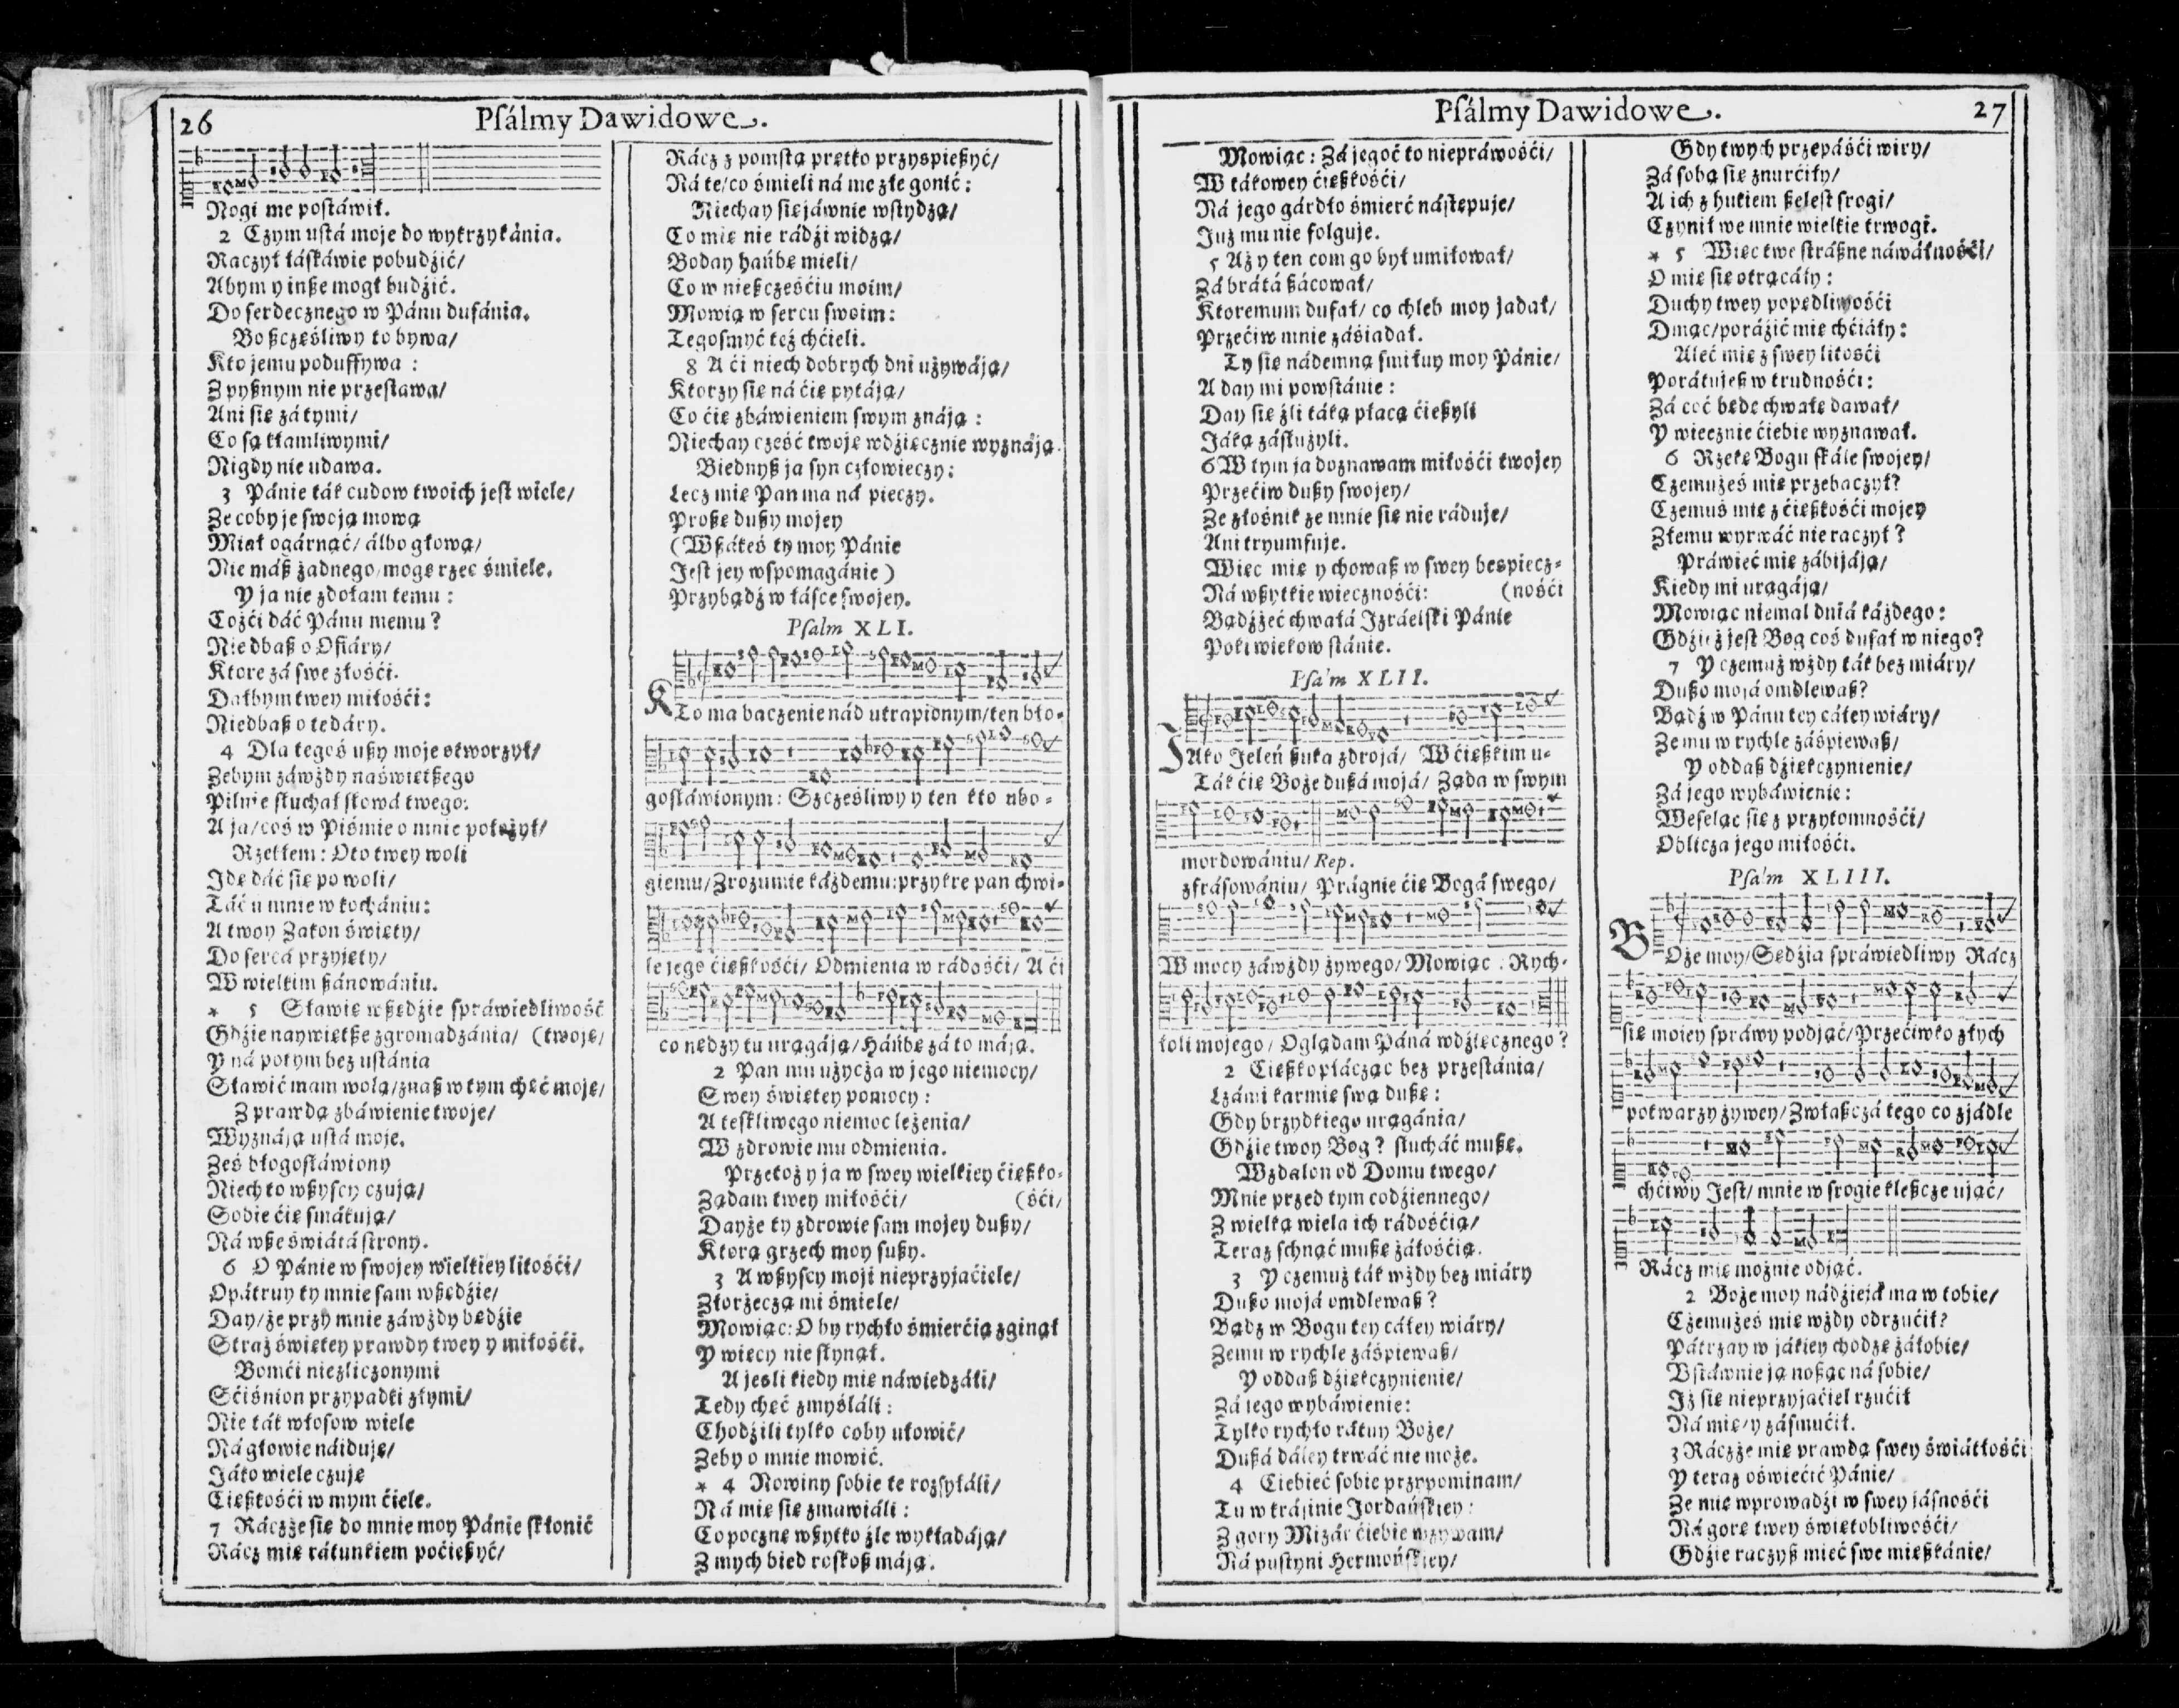 26 Pſálmy Dawidowe.
Nogi me poſtáwił.
2 Czym uſtá moje do wykrzykánia.
Raczył łáſkáwie pobudźić/
Abym y inße mogł budźić.
Do ſerdecznego w Pánu dufánia.
Bo ßczęśliwy to bywa/
Kto jemu poduffywa :
Z pyßnym nie przeſtawa/
Ani ſię zá tymi/
Co ſą kłamliwymi/
Nigdy nie udawa.
3 Pánie ták cudow twoich jeſt wiele/
Ze coby je ſwoją mową
Miał ogárnąć/ álbo głową/
Nie máß żadnego/ mogę rzec śmiele.
Y ja nie zdołam temu :
Cożći dáć Pánu memu?
Nie dbaß o Ofiáry/
Ktore zá ſwe złośći.
Dałbym twey miłośći:
Niedbaß o te dáry.
4 Dla tegoś ußy moje otworzył/
Zebym záwżdy naświętßego
Pilnie ſłuchał ſłowá twego:
A ja/ coś w Piśmie o mnie położył/
Rzekłem: Oto twey woli
Idę dáć ſię po woli/
Táć u mnie w kochániu:
A twoy Zakon święty/
Do ſercá przyjęty/
W wielkim ßánowániu.
* 5 Sławię wßędzie ſpráwiedliwość
Gdźie naywiętße zgromadzánia/ (twoję/
Y ná potym bez uſtánia
Sławić mam wolą/znaß w tym chęć moję/
Z prawdą zbáwienie twoje/
Wyznáją uſtá moje.
Ześ błogoſłáwiony
Niech to wßyſcy czują/
Sobie ćię ſmákują/
Ná wße świátá ſtrony.
6 O Pánie w ſwojey wielkiey litośći/
Opátruy ty mnie ſam wßędźie/
Day/ że przy mnie záwżdy będźie
Straż świętey prawdy twey y miłośći.
Bomći niezliczonymi
Sćiśnion przypadki złymi/
Nie ták włoſow wiele
Ná głowie náiduję/
Jáko wiele czuję
Ciężkośći w mym ćiele.
7 Rácżże ſię do mnie moy Pánie ſkłonić
Rácz mię rátunkiem poćießyć/
Rácz z pomſtą prętko przyspießyć/
Ná te/ co śmieli ná me złe gonić:
Niechay ſię jáwnie wſtydzą/
Co mię nie rádźi widzą/
Boday háńbę mieli/
Co w nießczęśćiu moim/
Mowią w ſercu ſwoim:
Tegoſmyć też chćieli.
8 A ći niech dobrych dni używáją/
Ktorzy ſię ná ćię pytáją/
Co ćię zbáwieniem ſwym znáją :
Niechay cześć twoję wdźięcznie wyznáją.
Biednyß ja ſyn człowieczy:
Lecz mię Pan ma ná pieczy.
Proßę dußy mojey
(Wßákeś ty moy Pánie
Jeſt jey wſpomagánie)
Przybądź w łáſce ſwojey.
Pſalm XLI.
KTo ma baczenie nád utrapionym/ten bło-
goſłáwionym: Szczęśliwy y ten kto ubo-
giemu/Zrozumie káżdemu:przykre pan chwi-
le jego ćięßkośći/ Odmienia w rádośći/ A ći
co nędzy tu urągáją/ Háńbę zá to máją.
2 Pan mu użycża w jego niemocy/
Swey świętey pomocy :
A teſkliwego niemoc leżenia/
W zdrowie mu odmienia.
Przetoż y ja w ſwey wielkiey ćięßko-
Ządam twey miłośći/ (śći/
Dayże ty zdrowie ſam mojey dußy/
Ktorą grzech moy ſußy.
3 A wßyſcy moji nieprzyjaćiele/
Złorzeczą mi śmiele/
Mowiąc: O by rychło śmierćią zginął
Y więcy nie ſłynął.
A jesli kiedy mię náwiedzáli/
Tedy chęć zmyśláli :
Chodźili tylko coby ułowić/
Zeby o mnie mowić.
* 4 Nowiny ſobie te rozſyłáli/
Ná mię ſię zmawiáli :
Co pocznę wßytko źle wykładáją/
Z mych bied roſkoß máją.
Pſálmy Dawidowe. 27
Mowiąc: Zá jegoć to niepráwośći/
W tákowey ćięßkośći/
Ná jego gárdło śmierć náſtępuje/
Już mu nie folguje.
5 Aż y ten com go był umiłował/
Zá brátá ßácował/
Ktoremum dufał/ co chleb moy jadał/
Przećiw mnie záśiadał.
Ty ſię nádemną ſmiłuy moy Pánie/
A day mi powſtánie :
Day ſię źli táką płacą ćießyli
Jáką záſłużyli.
6 W tym ja doznawam miłośći twojey
Przećiw dußy ſwojey/
Ze złośnik ze mnie ſię nie ráduje/
Ani tryumfuje.
Więc mię y chowaß w ſwey beſpiecz-
Ná wßytkie wiecznośći: (nośći
Bądźżeć chwałá Izráelſki Pánie
Poki wiekow ſtánie.
Pſalm XLII.
JAko Jeleń ßuka zdrojá/ W ćięßkim u-
Ták ćię Boże dußá mojá/ Żąda w ſwym
mordowániu/ Rep.
zfráſowániu/ Prágnie ćię Bogá ſwego/
W mocy záwżdy żywego/ Mowiąc : Rych-
łoli mojego/ Oglądam Páná wdźięcznego ?
2 Cięßko płácząc bez przeſtánia/
Łzámi karmię ſwą dußę :
Gdy brzydkiego urągánia/
Gdźie twoy Bog? ſłucháć mußę.
Wzdalon od Domu twego/
Mnie przed tym codźiennego/
Z wielką wiela ich rádośćią/
Teraz ſchnąć mußę żáłośćią.
3 Y czemuż ták wżdy bez miáry
Dußo mojá omdlewaß?
Bądz w Bogu tey cáłey wiáry/
Zemu w rychle záśpiewaß/
Y oddaß dźiękczynienie/
Zá jego wybáwienie:
Tylko rychło rátuy Boże/
Dußá dáley trwáć nie może.
4 Ciebieć ſobie przypominam/
Tu w kráinie Jordańſkiey:
Z gory Mizár ćiebie wzywam/
Ná puſtyni Hermońſkiey/
Gdy twych przepáśći wiry/
Zá ſobą ſię znurćiły/
A ich z hukiem ßeleſt ſrogi/
Czynił we mnie wielkie trwogi.
* 5 Więc twe ſtráßne náwáłnośći/
O mię ſię otrącáły :
Duchy twey popędliwośći
Dmąc/poráźić mię chćiáły:
Aleć mię z ſwey litośći
Porátujeß w trudnośći:
Zá coć będę chwałę dawał/
Y wiecznie ćiebie wyznawał.
6 Rzekę Bogu ſkále ſwojey/
Czemużeś mię przebaczył?
Czemuś mię z ćięßkośći mojey
Złemu wyrwáć nie raczył?
Práwieć mię zábijáją/
Kiedy mi urągáją/
Mowiąc niemal dniá káżdego:
Gdźież jeſt Bog coś dufał w niego?
7 Y czemuż wżdy ták bez miáry/
Dußo mojá omdlewaß?
Bądź w Pánu tey cáłey wiáry/
Zemu w rychle záśpiewaß/
Y oddaß dźiękczynienie/
Zá jego wybáwienie:
Weſeląc ſię z przytomnośći/
Oblicza jego miłośći.
Pſalm XLIII.
BOże moy/ Sędźia ſpráwiedliwy Rácz
ſię mojey ſpráwy podjąć/ Przećiwko złych
potwarzy żywey/ Zwłaßczá tego co zjádle
chćiwy Jeſt/ mnie w ſrogie kleßcze ująć/
Rácz mię możnie odjąć.
2 Boże moy nádźiejá ma w tobie/
Czemużeś mię wżdy odrzućił?
Pátrzay w jákiey chodzę żáłobie/
Vſtáwnie ją noßąc ná ſobie/
Iż ſię nieprzyjaćiel rzućił
Ná mię/ y záſmućił.
3 Ráczże mię prawdą ſwey świátłośći
Y teraz oświećić Pánie/
Ze mię wprowadźi w ſwey jáſnośći
Ná gorę twey świętobliwośći/
Gdźie raczyß mieć ſwe mießkánie/